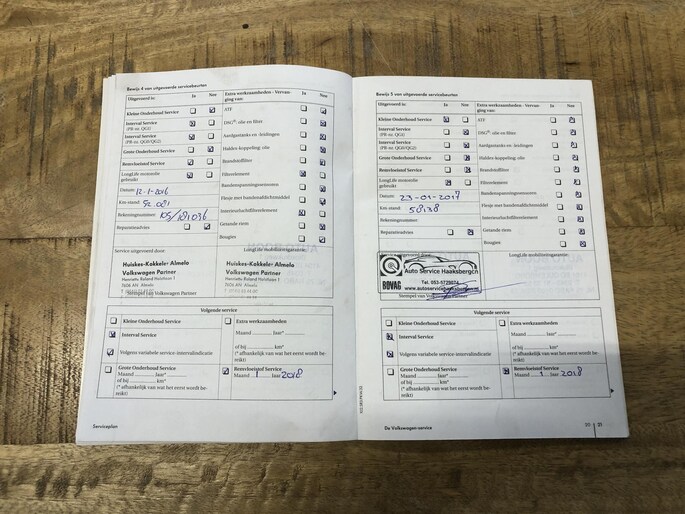 Bewijs 4 van uitgevoerde servicebeurten
Uitgevoerd is: Ja Nee
Kleine Onderhoud Service
Interval Service
(PR-nr. QG1)
Interval Service
(PR-nr. QG0/QG2)
Grote Onderhoud Service
Remvloeistof Service
LongLife motorolie
gebruikt
Datum: 12-1-2016
Km stand: 52.081
Rekeningnummer: 105/181036
Reparatieadvies
Extra werkzaamheden - Vervan-
ging van: Ja Nee
ATF
DSG®: olie en filter
Aardgastanks en -leidingen
Haldex-koppeling: olie
Brandstoffilter
Filterelement
Bandenspanningssensoren
Flesje met bandenafdichtmiddel
Interieurluchtfilterelement
Getande riem
Bougies
Service uitgevoerd door: LongLife mobiliteitsgarantie:
Huiskes-Kokkeler Almelo
Volkswagen Partner
Henriette Roland Holstlaan 1
7606 AN Almelo
Stempel van Volkswagen Partner
Huiskes-Kokkeler Almelo
Volkswagen Partner
Henriette Roland Holstlaan 1
7606 AN Almelo
Volgende service
Kleine Onderhoud Service
Interval Service
Volgens variabele service-intervalindicatie
Grote Onderhoud Service
Maand .......... Jaar* ..........
of bij .......... km*
(* afhankelijk van wat het eerst wordt be-
reikt)
Extra werkzaamheden
Maand .......... Jaar* ..........
of bij .......... km*
(* afhankelijk van wat het eerst wordt be-
reikt)
Remvloeistof Service
Maand 1 Jaar 2018
Serviceplan
Bewijs 5 van uitgevoerde servicebeurten
Uitgevoerd is: Ja Nee
Kleine Onderhoud Service
Interval Service
(PR-nr. QG1)
Interval Service
(PR-nr. QG0/QG2)
Grote Onderhoud Service
Remvloeistof Service
LongLife motorolie
gebruikt
Datum: 23-01-2017
Km stand: 58138
Rekeningnummer:
Reparatieadvies
Extra werkzaamheden - Vervan-
ging van: Ja Nee
ATF
DSG®: olie en filter
Aardgastanks en -leidingen
Haldex-koppeling: olie
Brandstoffilter
Filterelement
Bandenspanningssensoren
Flesje met bandenafdichtmiddel
Interieurluchtfilterelement
Getande riem
Bougies
Service uitgevoerd door: LongLife mobiliteitsgarantie:
Auto Service Haaksbergen
BOVAG
Tel. 053-5725074
www.autoservicehaaksbergen.nl
Stempel van Volkswagen Partner
Volgende service
Kleine Onderhoud Service
Interval Service
Volgens variabele service-intervalindicatie
Grote Onderhoud Service
Maand .......... Jaar* ..........
of bij .......... km*
(* afhankelijk van wat het eerst wordt be-
reikt)
Extra werkzaamheden
Maand .......... Jaar* ..........
of bij .......... km*
(* afhankelijk van wat het eerst wordt be-
reikt)
Remvloeistof Service
Maand 1 Jaar 2018
De Volkswagen-service
21